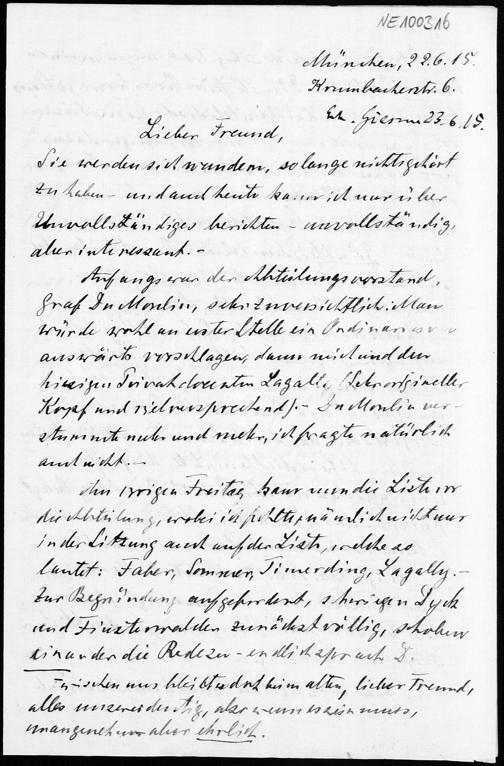 NE100316
München, 22.6.15.
Krumbacherstr. 6.
23.6.15.
Lieber Freund,
Sie werden sich wundern, so lange nichts gehört
zu haben - und auch heute kann ich nur über
Unvollständiges berichten - unvollständig,
aber interessant. -
Anfangs war der Abteilungsvorstand,
Graf Du Moulin, sehr zuversichtlich: Man
würde wohl an erster Stelle ein Ordinarius von
auswärts vorschlagen, dann mich und den
hiesigen Privatdocenten Lagally (Sehr origineller
Kopf und vielversprechend). - Du Moulin ver-
stummte mehr und mehr, ich fragte natürlich
auch nicht. -
Am vorigen Freitag kam nun die Liste vor
die Abteilung, wobei ich fehlte, nämlich nicht nur
in der Sitzung auch auf der Liste, welche so
lautet: Faber, Sommer, Timerding, Lagally. -
Zur Begründung aufgefordert, schwiegen Dyck
und Finsterwalder zunächst völlig, schoben
einander die Rede zu - endlich sprach D.
Zwischen uns bleibt es doch beim alten, lieber Freund,
alles unzweideutig, aber wenn es sein muss,
unangenehm aber ehrlich.